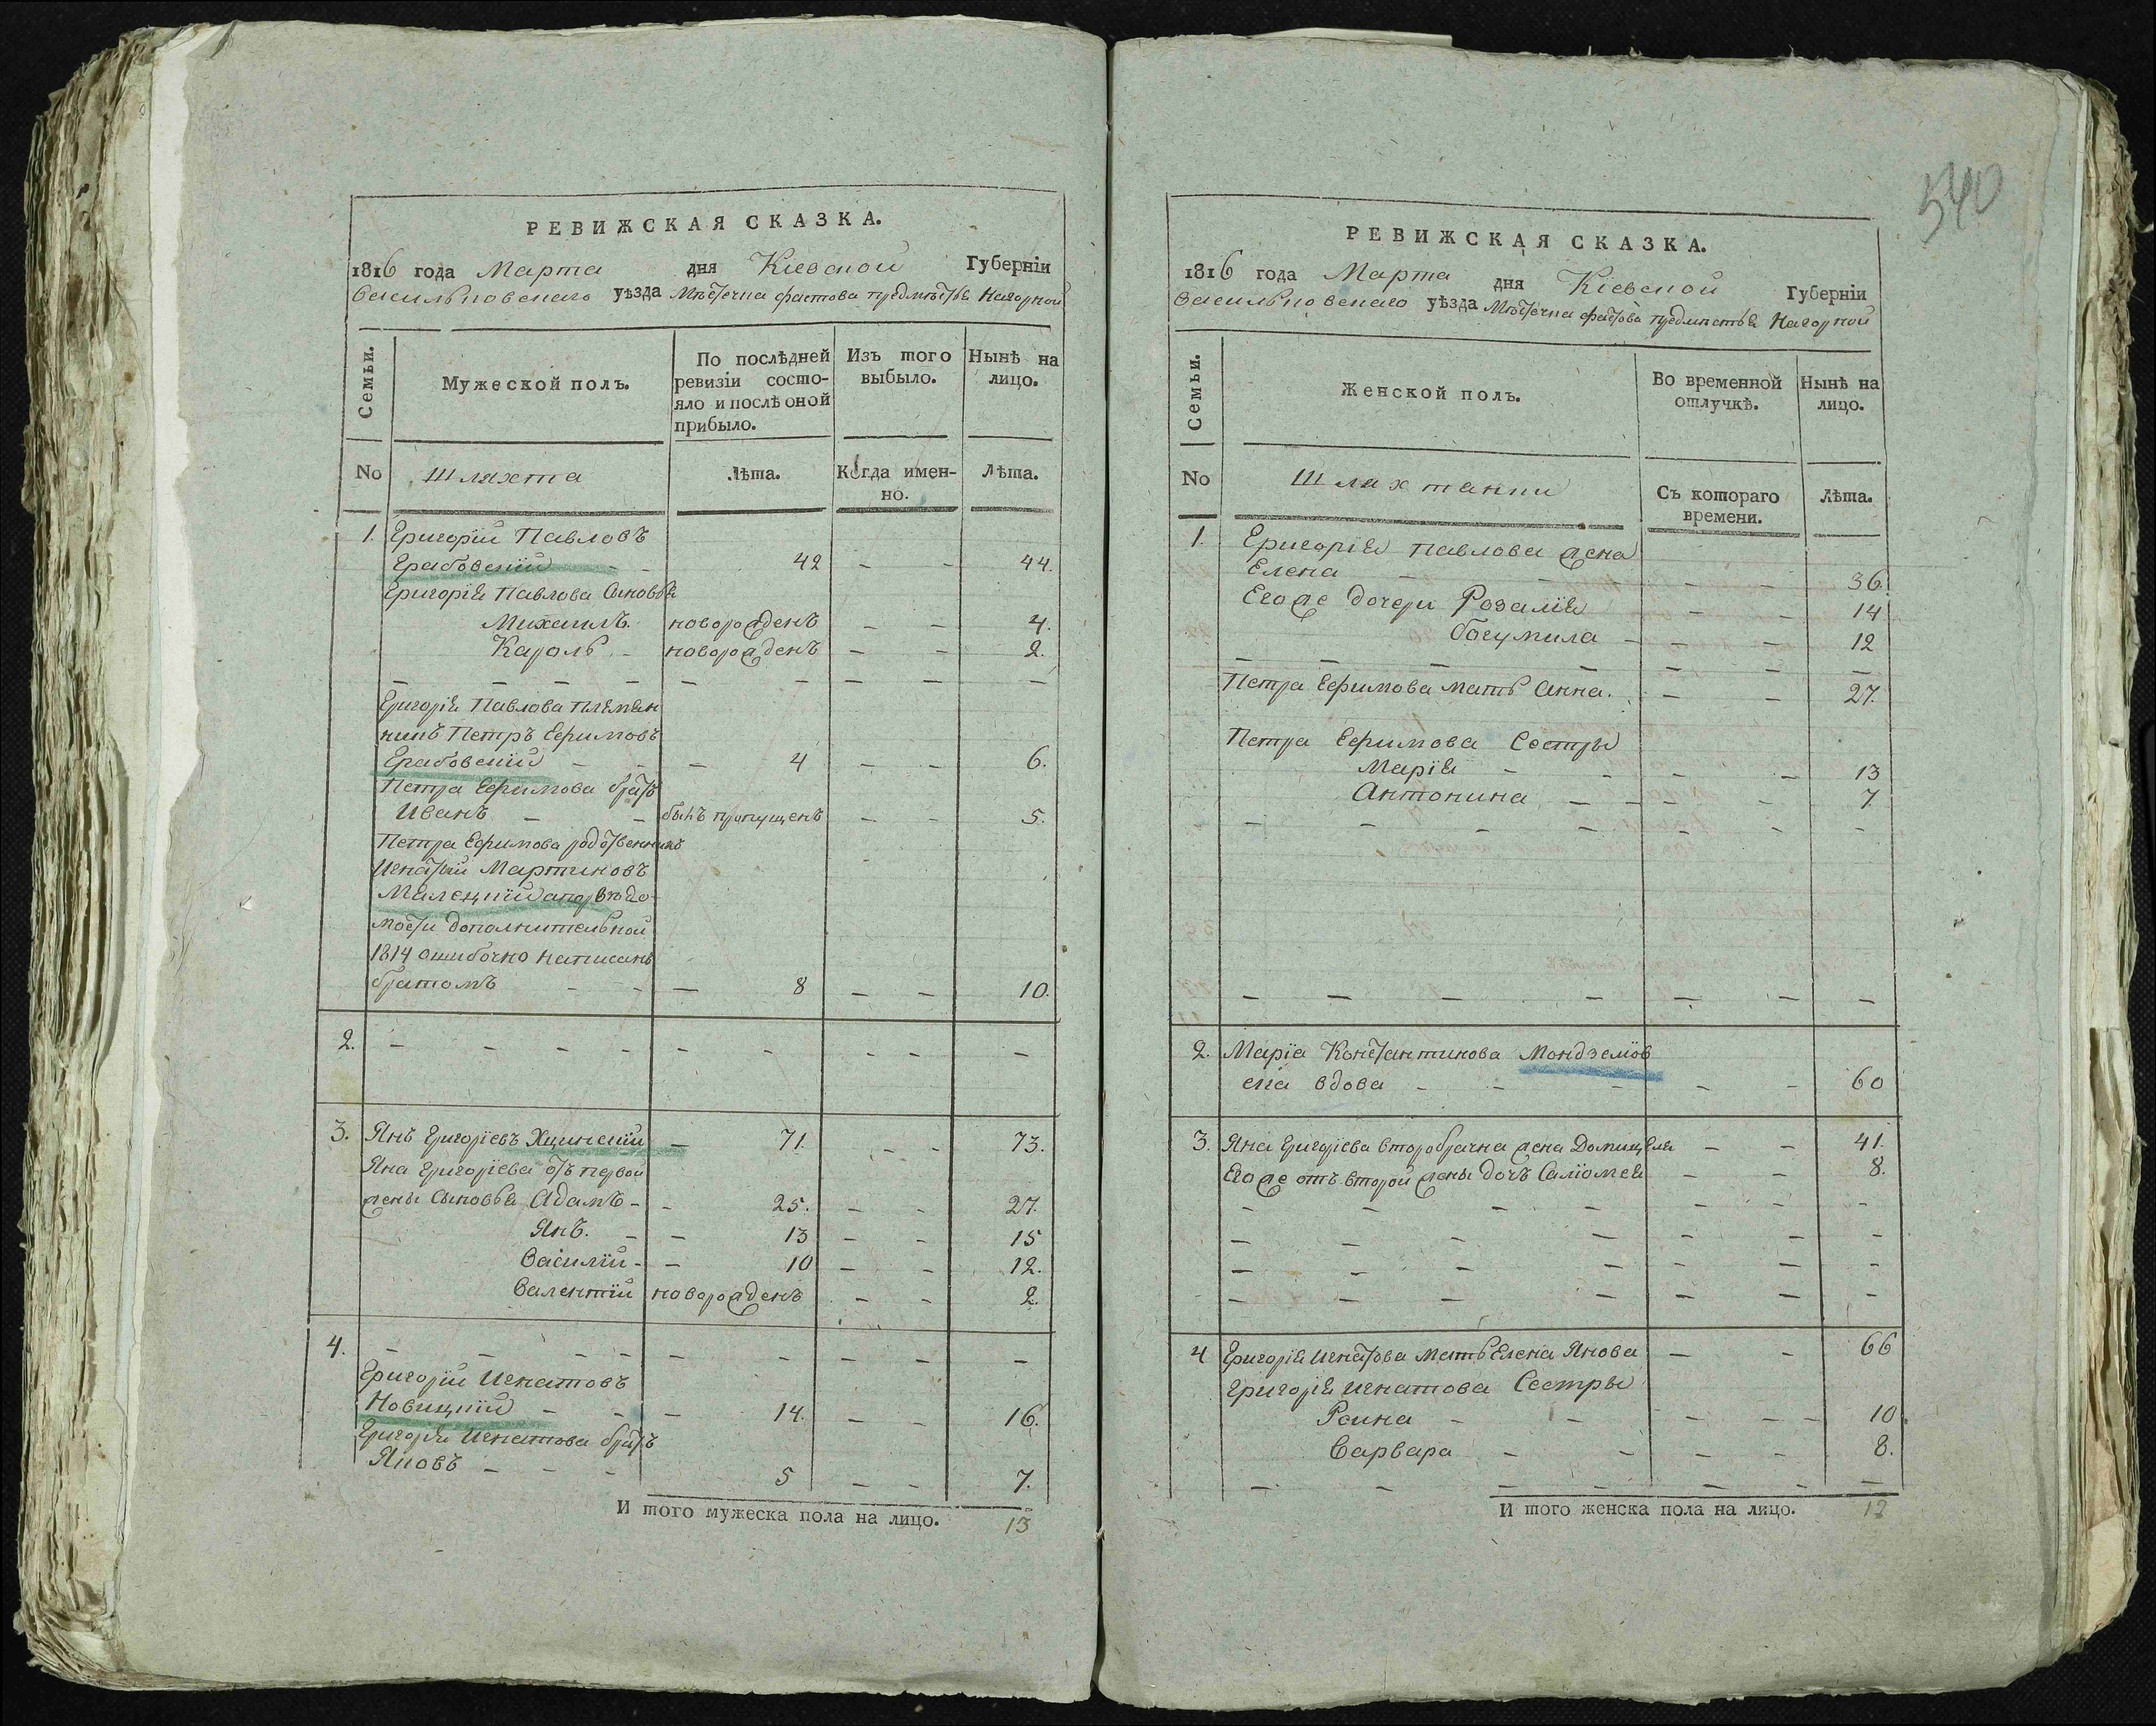 РЕВИЖСКАЯ СКАЗКА.
1816 года Марта дня Кіевской Губерніи
Васильковскаго уѣзда Мѣстечка Фастова предмѣстья Нагорной
Семьи.
Мужеской полъ.
По послѣдней ревизіи состояло и послѣ оной прибыло.
Изъ того выбыло.
Нынѣ на лицо.
No Шляхта Лѣта. Когда именно. Лѣта.
1. Григорій Павловъ
Грабовскій - - 42 - - 44.
Григорія Павлова Сыновья
Михаилъ. новорожденъ - - 4.
Кароль - новорожденъ - - 2.
- - - - - - - - -
Григорія Павлова племян
никъ Петръ Ефимовъ
Грабовскій - - - 4 - - 6.
Петра Ефимова братъ
Иванъ - - былъ пропущенъ - - 5.
Петра Ефимова родственникъ
Игнатій Мартиновъ
Малецкій а по вѣдо
мости дополнительной
1814 ошибочно написанъ
братомъ - - - 8 - - 10.
2. - - - - - - - - -
3. Янъ Григоріевъ Хцинскій - 71. - - 73.
Яна Григоріева отъ первой
жены Сыновья Адамъ - - 25. - - 27.
Янъ. - - 13 - - 15
Василій - - 10 - - 12.
Валентій новорожденъ - - 2.
4. - - - - - - - - -
Григорій Игнатовъ
Новицкій - - - 14. - - 16.
Григорія Игнатова братъ
Яковъ - - - 5 - - 7.
И того мужеска пола на лицо. 13
540
РЕВИЖСКАЯ СКАЗКА.
1816 года Марта дня Кіевской Губерніи
Васильковскаго уѣзда Мѣстечка Фастова предмѣстья Нагорной
Семьи.
Женской полъ.
Во временной отлучкѣ.
Нынѣ на лицо.
No Шляхтянки Съ котораго времени. Лѣта.
1. Григорія Павлова жена
Елена - - - - 36.
Его же дочери Розалія - - 14
Богумила - - - 12
- - - - - - -
Петра Ефимова мать Анна. - - 27.
Петра Ефимова Сестры
Марія - - - - 13
Антонина - - - - 7
- - - - - - -
- - - - - - -
2. Марія Константинова Мондзелюв
ска вдова - - - - - 60
3. Яна Григоріева второбрачна жена Домицеля - - 41.
Его же отъ второй жены дочь Саломея - - 8.
- - - - - - -
- - - - - - -
- - - - - - -
- - - - - - -
4 Григорія Игнатова мать Елена Янова - - 66
Григорія Игнатова Сестры
Роина - - - - - 10
Варвара - - - - 8.
- - - - - - -
И того женска пола на лицо. 12